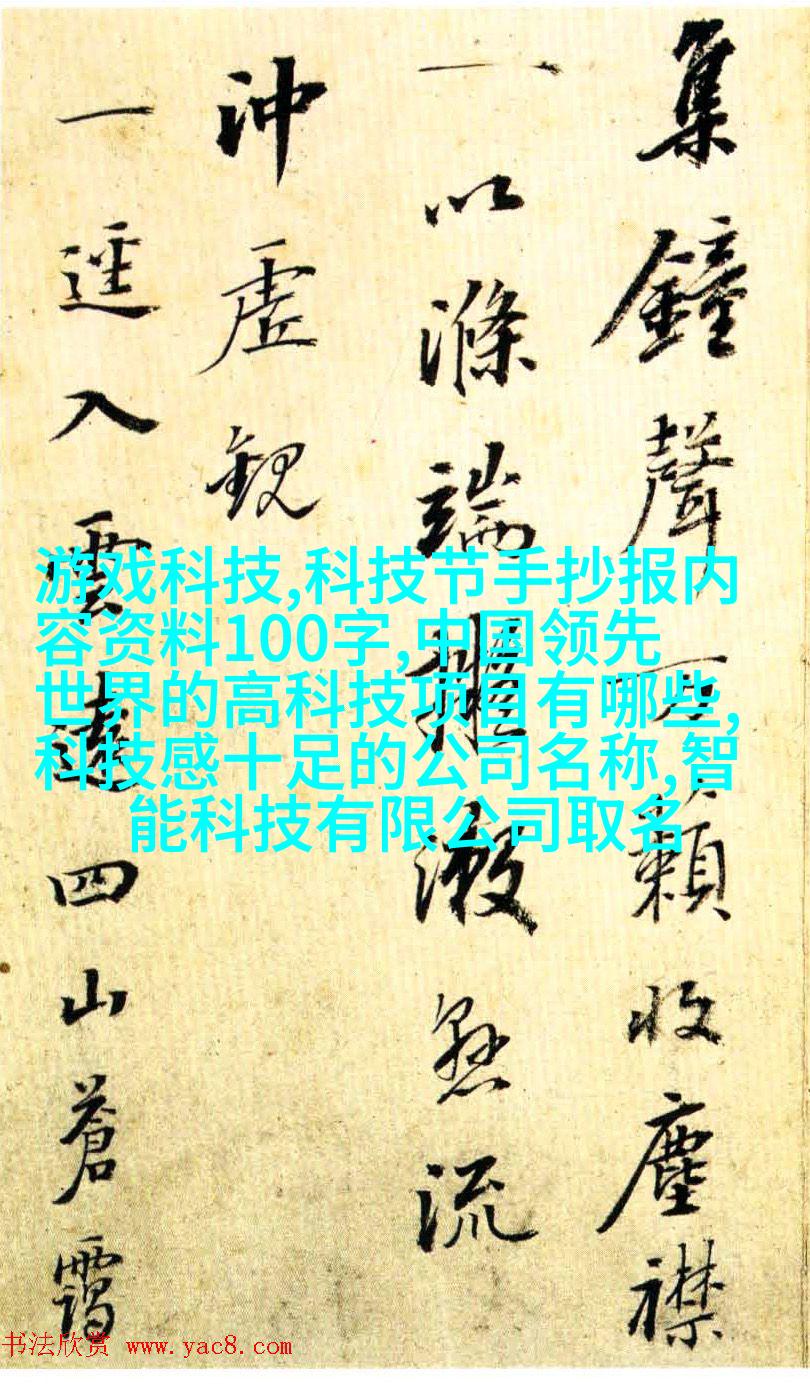 集鐘聲万籟收塵襟
一以滌端激懸流
沖虛觀
一逕入雲四山蒼靄
游戏科技,科技节手抄报内
容资料100字,中国领先
世界的高科技项目有哪些,
科技感十足的公司名称,智
能科技有限公司取名
书法欣赏 www.yac8.com